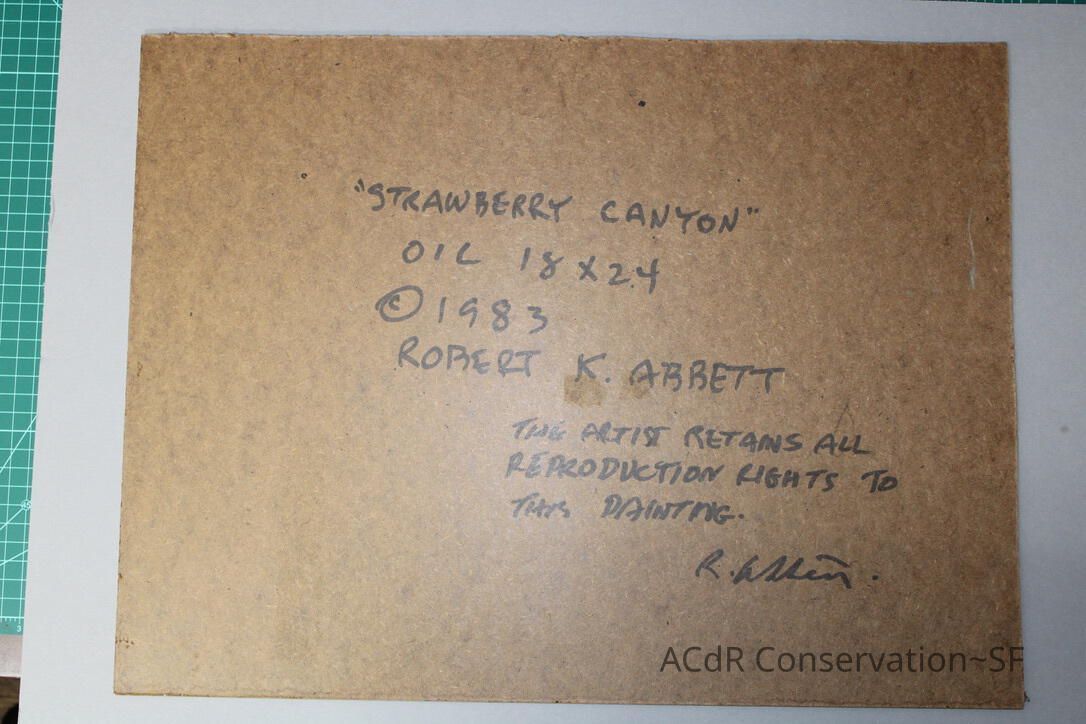 "STRAWBERRY CANYON"
OIL 18 X 24
© 1983
ROBERT K. ABBETT
THE ARTIST RETAINS ALL
REPRODUCTION RIGHTS TO
THIS PAINTING.
R. Abbett.
ACdR Conservation~SF